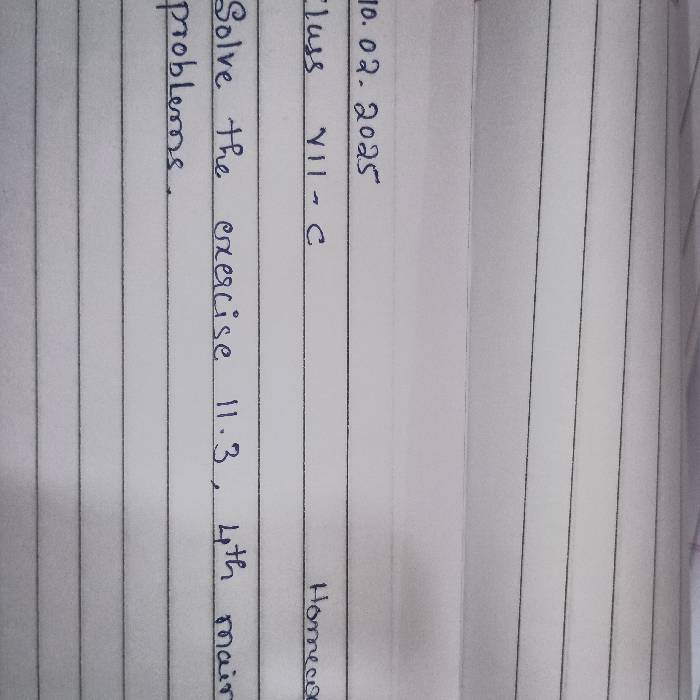 10.02.2025
Class VII-C Homewo
Solve the exercise 11.3, 4th main
problems.